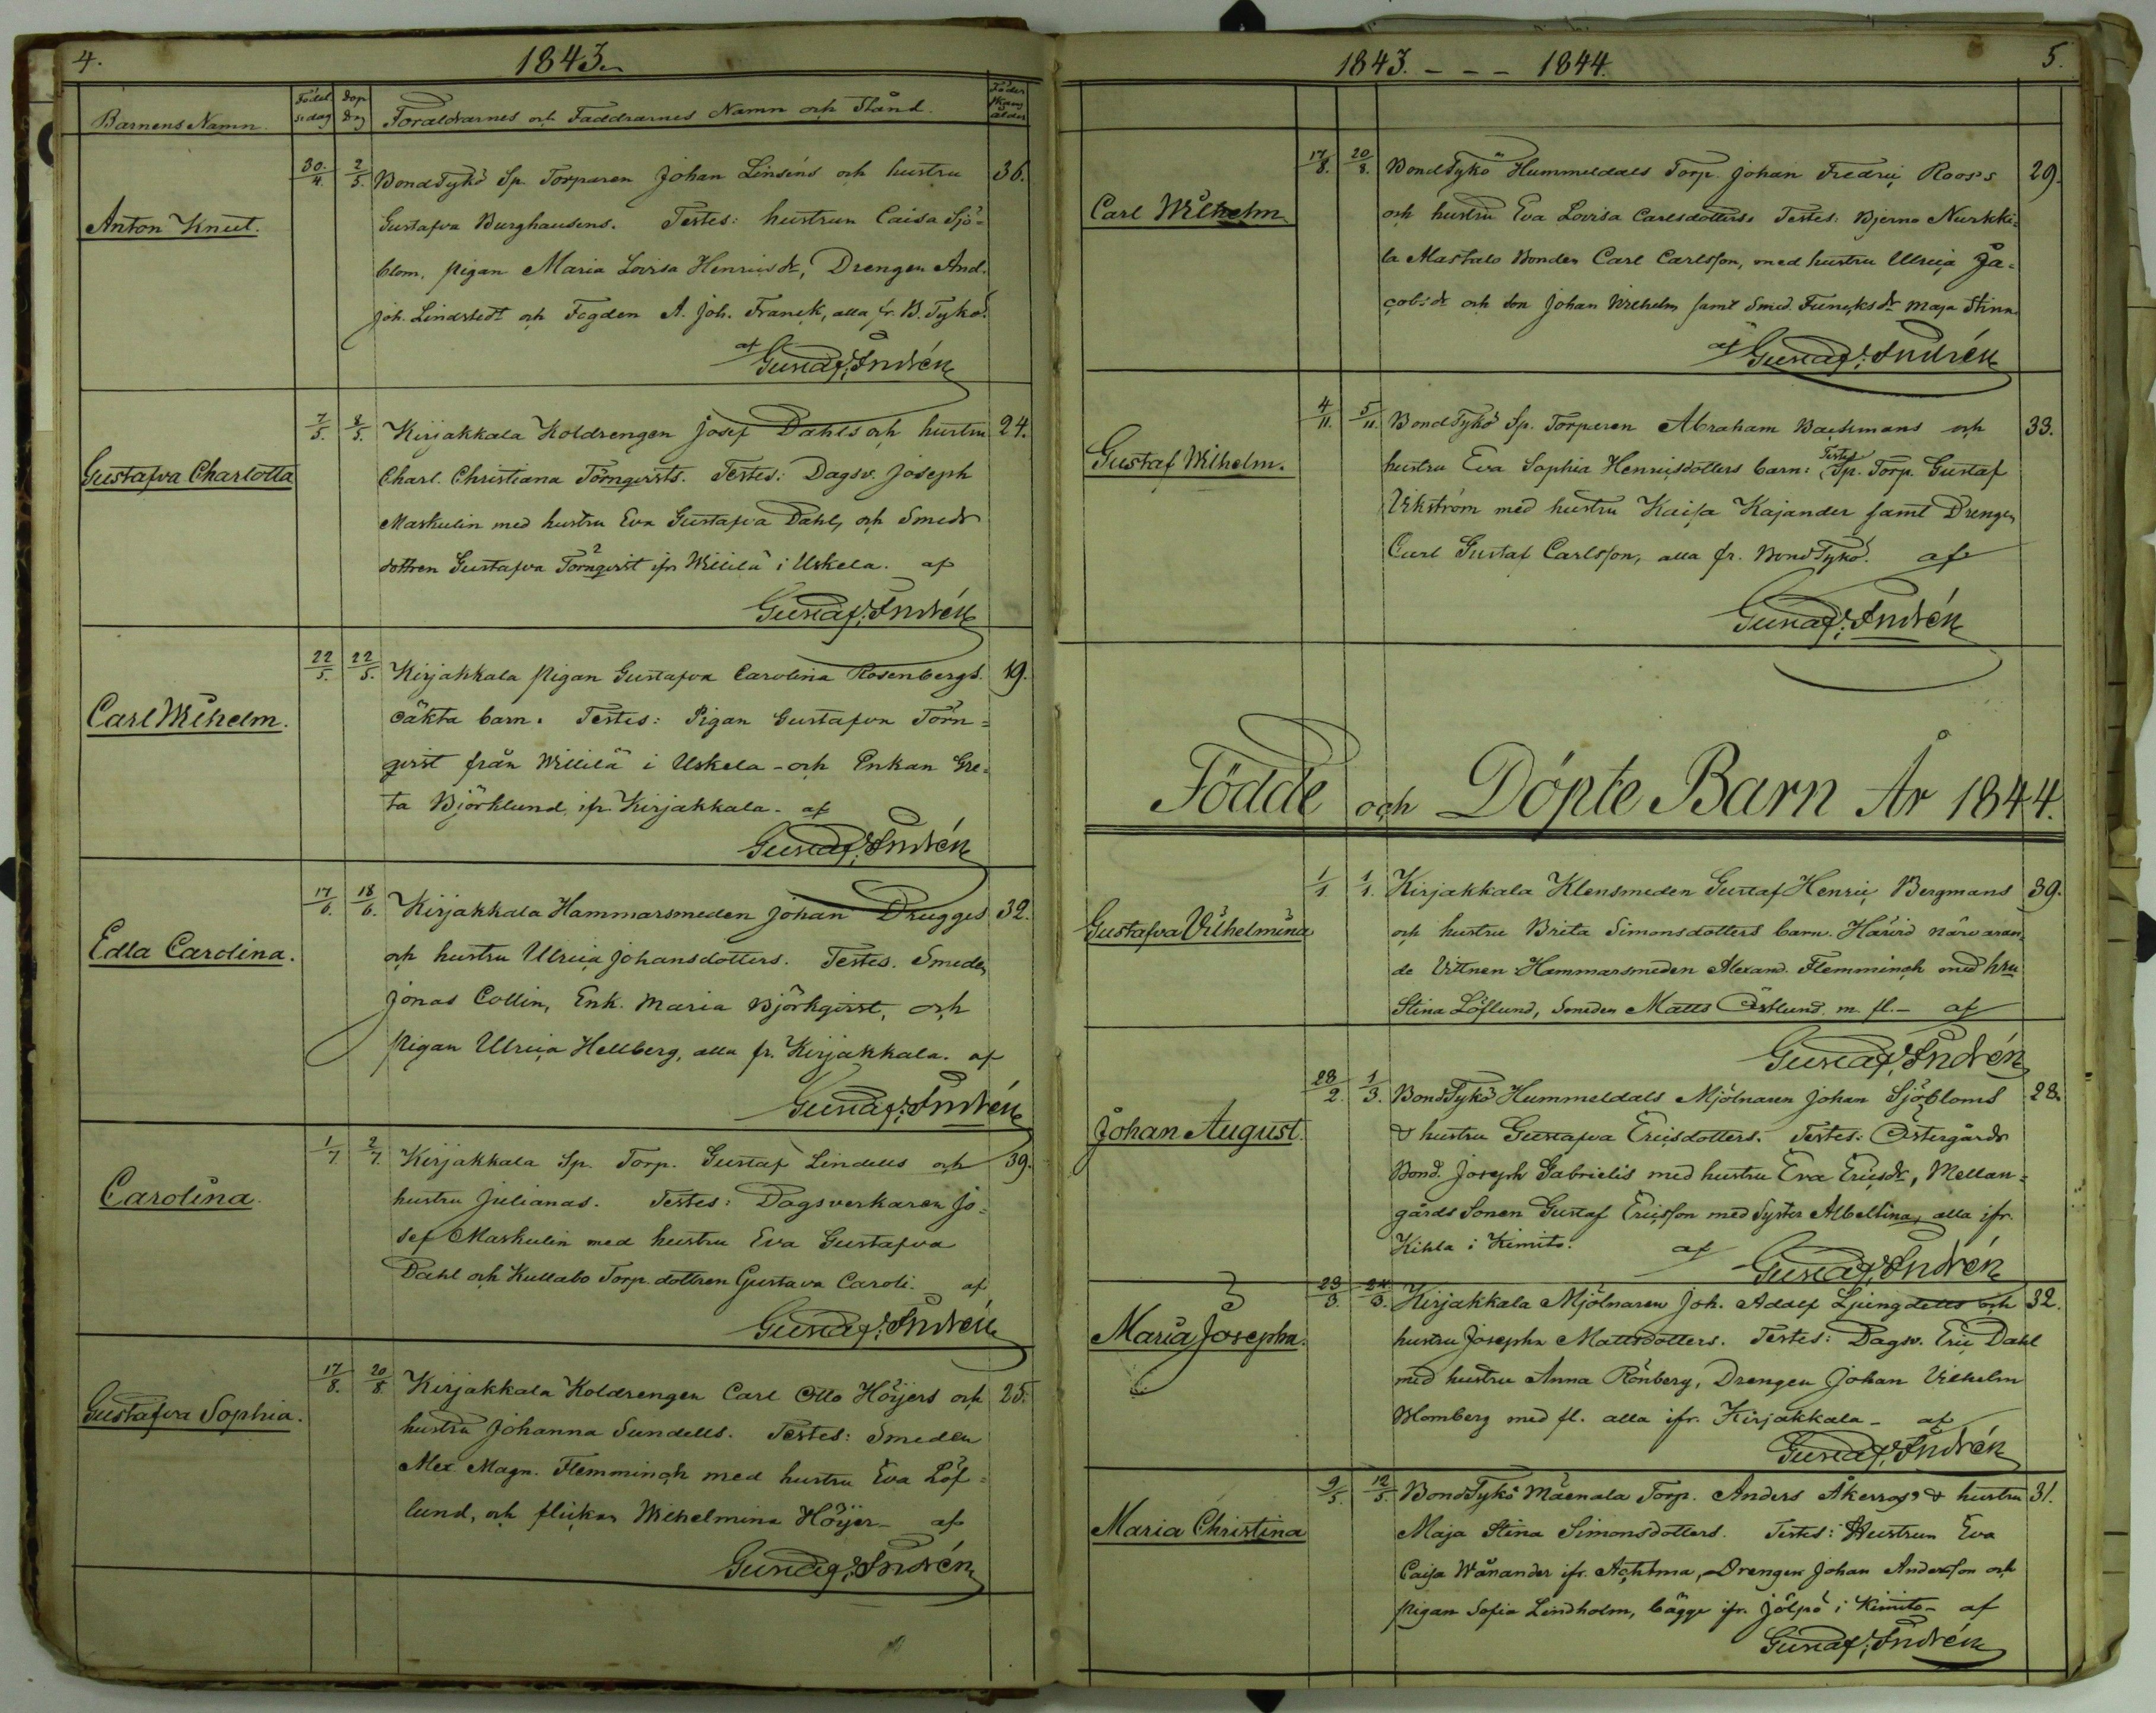 4.
1843.
Barnens Namn.
Födel
sedag
Dop
dag
Föräldrarnes och Faddrarnes Namn och Stånd.
Föder
skans
ålder
Anton Knut.
30/4.
2/5.
BondTykö Sp. Torparen Johan Linséns och hustru
36.
Gustafva Burghausens. Testes: hustrun Caisa Sjö=
blom, pigan Maria Lovisa Henricsdr, Drengen And.
Joh. Lindstedt och Fogden A. Joh. Franck, alla fr. B. Tykö.
af
Gustaf Andrén
Gustafva Charlotta
7/5.
8/5.
Kirjakkala Koldrengen Josef Dahls och hustru
24.
Charl. Christiana Törnqvists. Testes: Dagsv. Joseph
Maskulin med hustru Eva Gustafva Dahl, och Smeds
dottren Gustafva Törnqvist ifr. Willilä i Uskela. af
Gustaf Andrén
Carl Wilhelm.
22/5.
22/5.
Kirjakkala Pigan Gustafva Carolina Rosenbergs
19.
oäkta barn. Testes: Pigan Gustafva Törn=
qvist från Willilä i Uskela - och Enkan Gre=
ta Björklund ifr. Kirjakkala. af
Gustaf Andrén
Edla Carolina.
17/6.
18/6.
Kirjakkala Hammarsmeden Johan Drugges
32.
och hustru Ulrica Johansdotters. Testes. Smeden
Jonas Collin, Enk. Maria Björkqvist, och
Pigan Ulrica Hellberg, alla fr. Kirjakkala. af
Gustaf Andrén
Carolina.
1/7.
2/7.
Kirjakkala Sp. Torp. Gustaf Lindells och
39.
hustru Julianas. Testes: Dagsverkaren Jo=
sef Maskulin med hustru Eva Gustafva
Dahl och Kullabo Torp. dottren Gustava Caroli. af
Gustaf Andrén
Gustafva Sophia.
17/8.
20/8.
Kirjakkala Koldrengen Carl Otto Höijers och
25.
hustru Johanna Sundells. Testes: Smeden
Alex. Magn. Flemminch med hustru Eva Löf=
lund, och flickan Wilhelmina Höijer - af
Gustaf Andrén
1843. - - - 1844.
5.
Carl Wilhelm
17/8.
20/8.
BondTykö Hummeldals Torp. Johan Fredric Roos's
29.
och hustru Eva Lovisa Carlsdotters. Testes: Bjerno Nurkki=
la Mastalo Bonden Carl Carlsson, med hustru Ulrica Ja=
cobsdr och son Johan Wilhelm samt Smed. Funcksdr Maja Stina
af
Gustaf Andrén
Gustaf Wilhelm.
4/11.
5/11.
BondTykö Sp. Torparen Abraham Backmans och
33.
hustru Eva Sophia Henricsdotters barn: Testes Sp. Torp. Gustaf
Vikström med hustru Kaisa Kajander samt Drengen
Carl Gustaf Carlsson, alla fr. BondTykö. af
Gustaf Andrén
Födde och Döpte Barn År 1844.
Gustafva Vilhelmina
1/1
1/1.
Kirjakkala Klensmeden Gustaf Henric Bergmans
39.
och hustru Brita Simonsdotters barn. Härvid närvaran=
de Vittnen Hammarsmeden Alexand. Flemminch med hru
Stina Löflund, Smeden Matts Östlund m. fl. - af
Gustaf Andrén
Johan August.
28/2.
1/3.
BondTykö Hummeldals Mjölnaren Johan Sjöbloms
28.
& hustru Gustafva Ericsdotters. Testes: Östergårds
Bond. Joseph Gabrielis med hustru Eva Ericsdr, Mellan=
gårds Sonen Gustaf Ericsson med Syster Albertina, alla ifr.
Kihla i Kimito. af
Gustaf Andrén
Maria Josepha.
23/3.
24/3.
Kirjakkala Mjölnaren Joh. Adolf Ljungdells och
32.
hustru Josepha Mattsdotters. Testes: Dagsv. Eric Dahl
med hustru Anna Rönberg, Drengen Johan Vilhelm
Blomberg med fl. alla ifr. Kirjakkala - af
Gustaf Andrén
Maria Christina
9/5.
12/5.
BondTykö Mäenala Torp. Anders Åkerros's & hustru
31.
Maja Stina Simonsdotters. Testes: Hustrun Eva
Caisa Wånander ifr. Achtma, Drengen Johan Andersson och
Pigan Sofia Lindholm, bägge ifr. Jölpö i Kimito - af
Gustaf Andrén